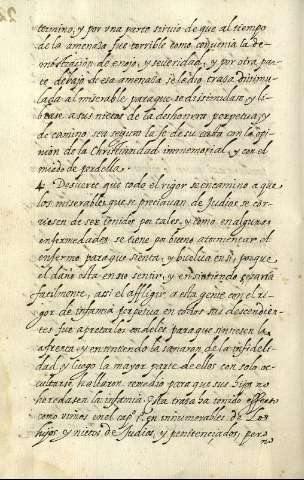 termino, y por una parte siruio de que al tiempo
de la amenaza fue terrible como conuenia la de-
mostraçion de enojo, y seueridad, y por otra par-
te debaxo de esa amenaza se le dio traza disimu-
lada al miserable para que se dissimulase, y li-
brase a sus nietos de la deshonrra perpetua, y
de camino sea segura la fe de su casta con la opi-
nion de la Christiandad immemorial y con el
miedo de perdella.
4. Desuerte que todo el rigor se encamino a que
los miserables que se preciauan de Judios se cor-
riesen de ser tenidos por tales, y como en algunas
enfermedades se tiene por bueno atormentar el
enfermo para que sienta, y buelua en si, porque
el daño esta en no sentir, y en sintiendo çesaria
facilmente, assi el affligir a esta gente con el ri-
gor de infamia perpetua en todos sus descendien-
tes fue apretar los cordeles para que sintiesen la
afrenta, y en sintiendo la sanaran de la infideli-
dad, y luego la mayor parte de ellos con solo o-
cultarse hallaron remedio para que sus hijos no
heredasen la infamia, y esta traza ha tenido effecto
como vimos en el cap. 1. en innumerables de los
hijos, y nietos de Judios, y penitenciados, pero
no